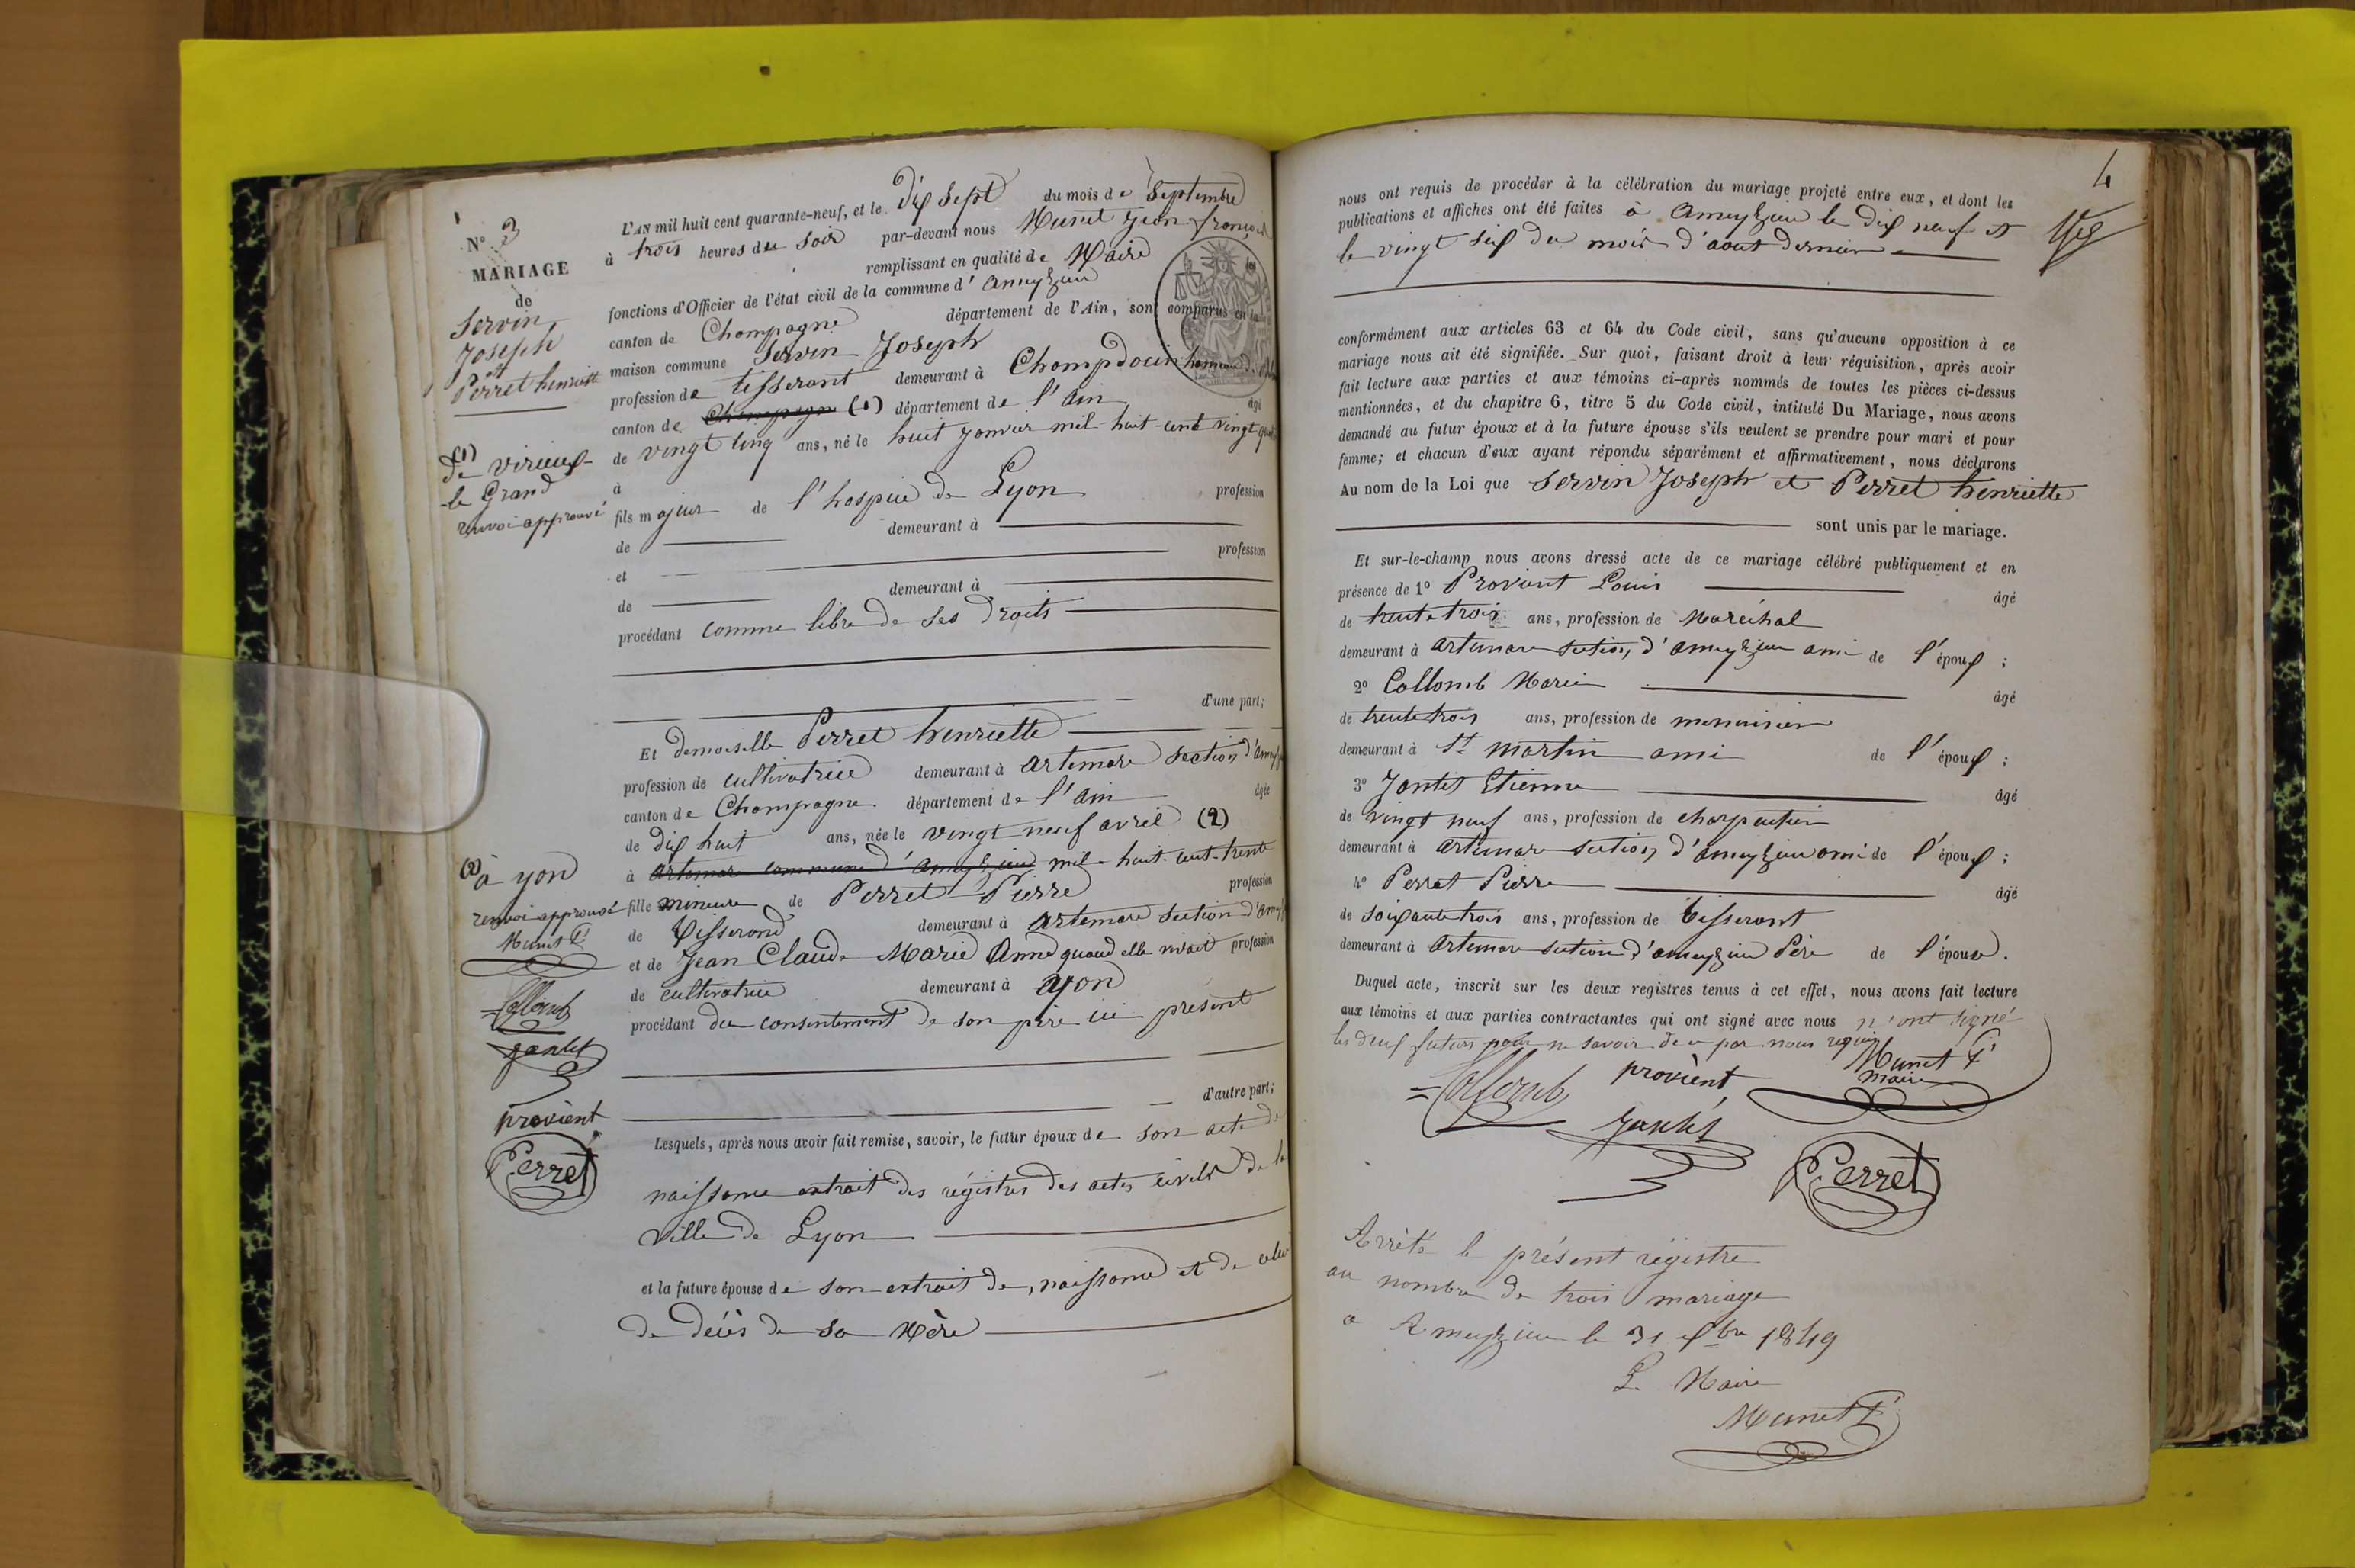 N° 3
MARIAGE
de
Servin
Joseph
et
Perret henriette
(1)
de virieux-
le Grand
renvoi approuvé
(2)
à yon
renvoi approuvé
Munet
Collomb
jantet
provient
Perret
L'AN mil huit cent quarante-neuf, et le dix sept du mois de Septembre
à trois heures du soir par-devant nous Munet jean françois
remplissant en qualité de Maire les
fonctions d'Officier de l'état civil de la commune d'ameyzieu
canton de Champagne département de l'Ain, sont comparus en la
maison commune Servin Joseph
profession de tisserant demeurant à Champdoin hameau d.
canton de Champagne (1) département de l'ain âgé
de vingt cinq ans, né le huit janvier mil-huit-cent vingt quatre
à
fils majeur de l'hospice de Lyon profession
de demeurant à
et profession
de demeurant à
procédant comme libre de ses droits
d'une part;
Et demoiselle Perret henriette
profession de cultivatrice demeurant à artemare section d'
canton de Champagne département de l'ain âgée
de dix huit ans, née le vingt neuf avril (2)
à artemare commune d'ameyzieu mil-huit-cent-trente
fille mineure de Perret Pierre profession
de tisserand demeurant à artemare section d'
et de Jean Claude Marie Anne quand elle vivait profession
de cultivatrice demeurant à yon
procédant du consentement de son père ici présent
d'autre part;
Lesquels, après nous avoir fait remise, savoir, le futur époux de son acte de
naissance extrait des régistres des actes civils de la
ville de Lyon
et la future épouse de son extrait de naissance et de celui
de décès de sa Mère
4
nous ont requis de procéder à la célébration du mariage projeté entre eux, et dont les
publications et affiches ont été faites à ameyzieu le dix neuf et
le vingt six du mois d'aout dernier
conformément aux articles 63 et 64 du Code civil, sans qu'aucune opposition à ce
mariage nous ait été signifiée. Sur quoi, faisant droit à leur réquisition, après avoir
fait lecture aux parties et aux témoins ci-après nommés de toutes les pièces ci-dessus
mentionnées, et du chapitre 6, titre 5 du Code civil, intitulé Du Mariage, nous avons
demandé au futur époux et à la future épouse s'ils veulent se prendre pour mari et pour
femme; et chacun d'eux ayant répondu séparément et affirmativement, nous déclarons
Au nom de la Loi que Servin Joseph et Perret henriette
sont unis par le mariage.
Et sur-le-champ nous avons dressé acte de ce mariage célébré publiquement et en
présence de 1° Provient Louis âgé
de trente trois ans, profession de Maréchal
demeurant à artemare section d'ameyzieu ami de l'époux ;
2° Collomb Marin âgé
de trente trois ans, profession de menuisier
demeurant à St martin ami de l'époux ;
3° Jantet Etienne âgé
de vingt neuf ans, profession de charpentier
demeurant à artemare section d'ameyzieu ami de l'époux ;
4° Perret Pierre âgé
de soixante trois ans, profession de tisserant
demeurant à artemare section d'ameyzieu Père de l'épouse.
Duquel acte, inscrit sur les deux registres tenus à cet effet, nous avons fait lecture
aux témoins et aux parties contractantes qui ont signé avec nous n'ont signé
les deux futurs pour ne savoir de ce par nous requis
Collomb provient Munet
maire
jantet
Perret
Arrêté le présent régistre
au nombre de trois mariage
a Ameyzieu le 31 xbre 1849
Le Maire
Munet